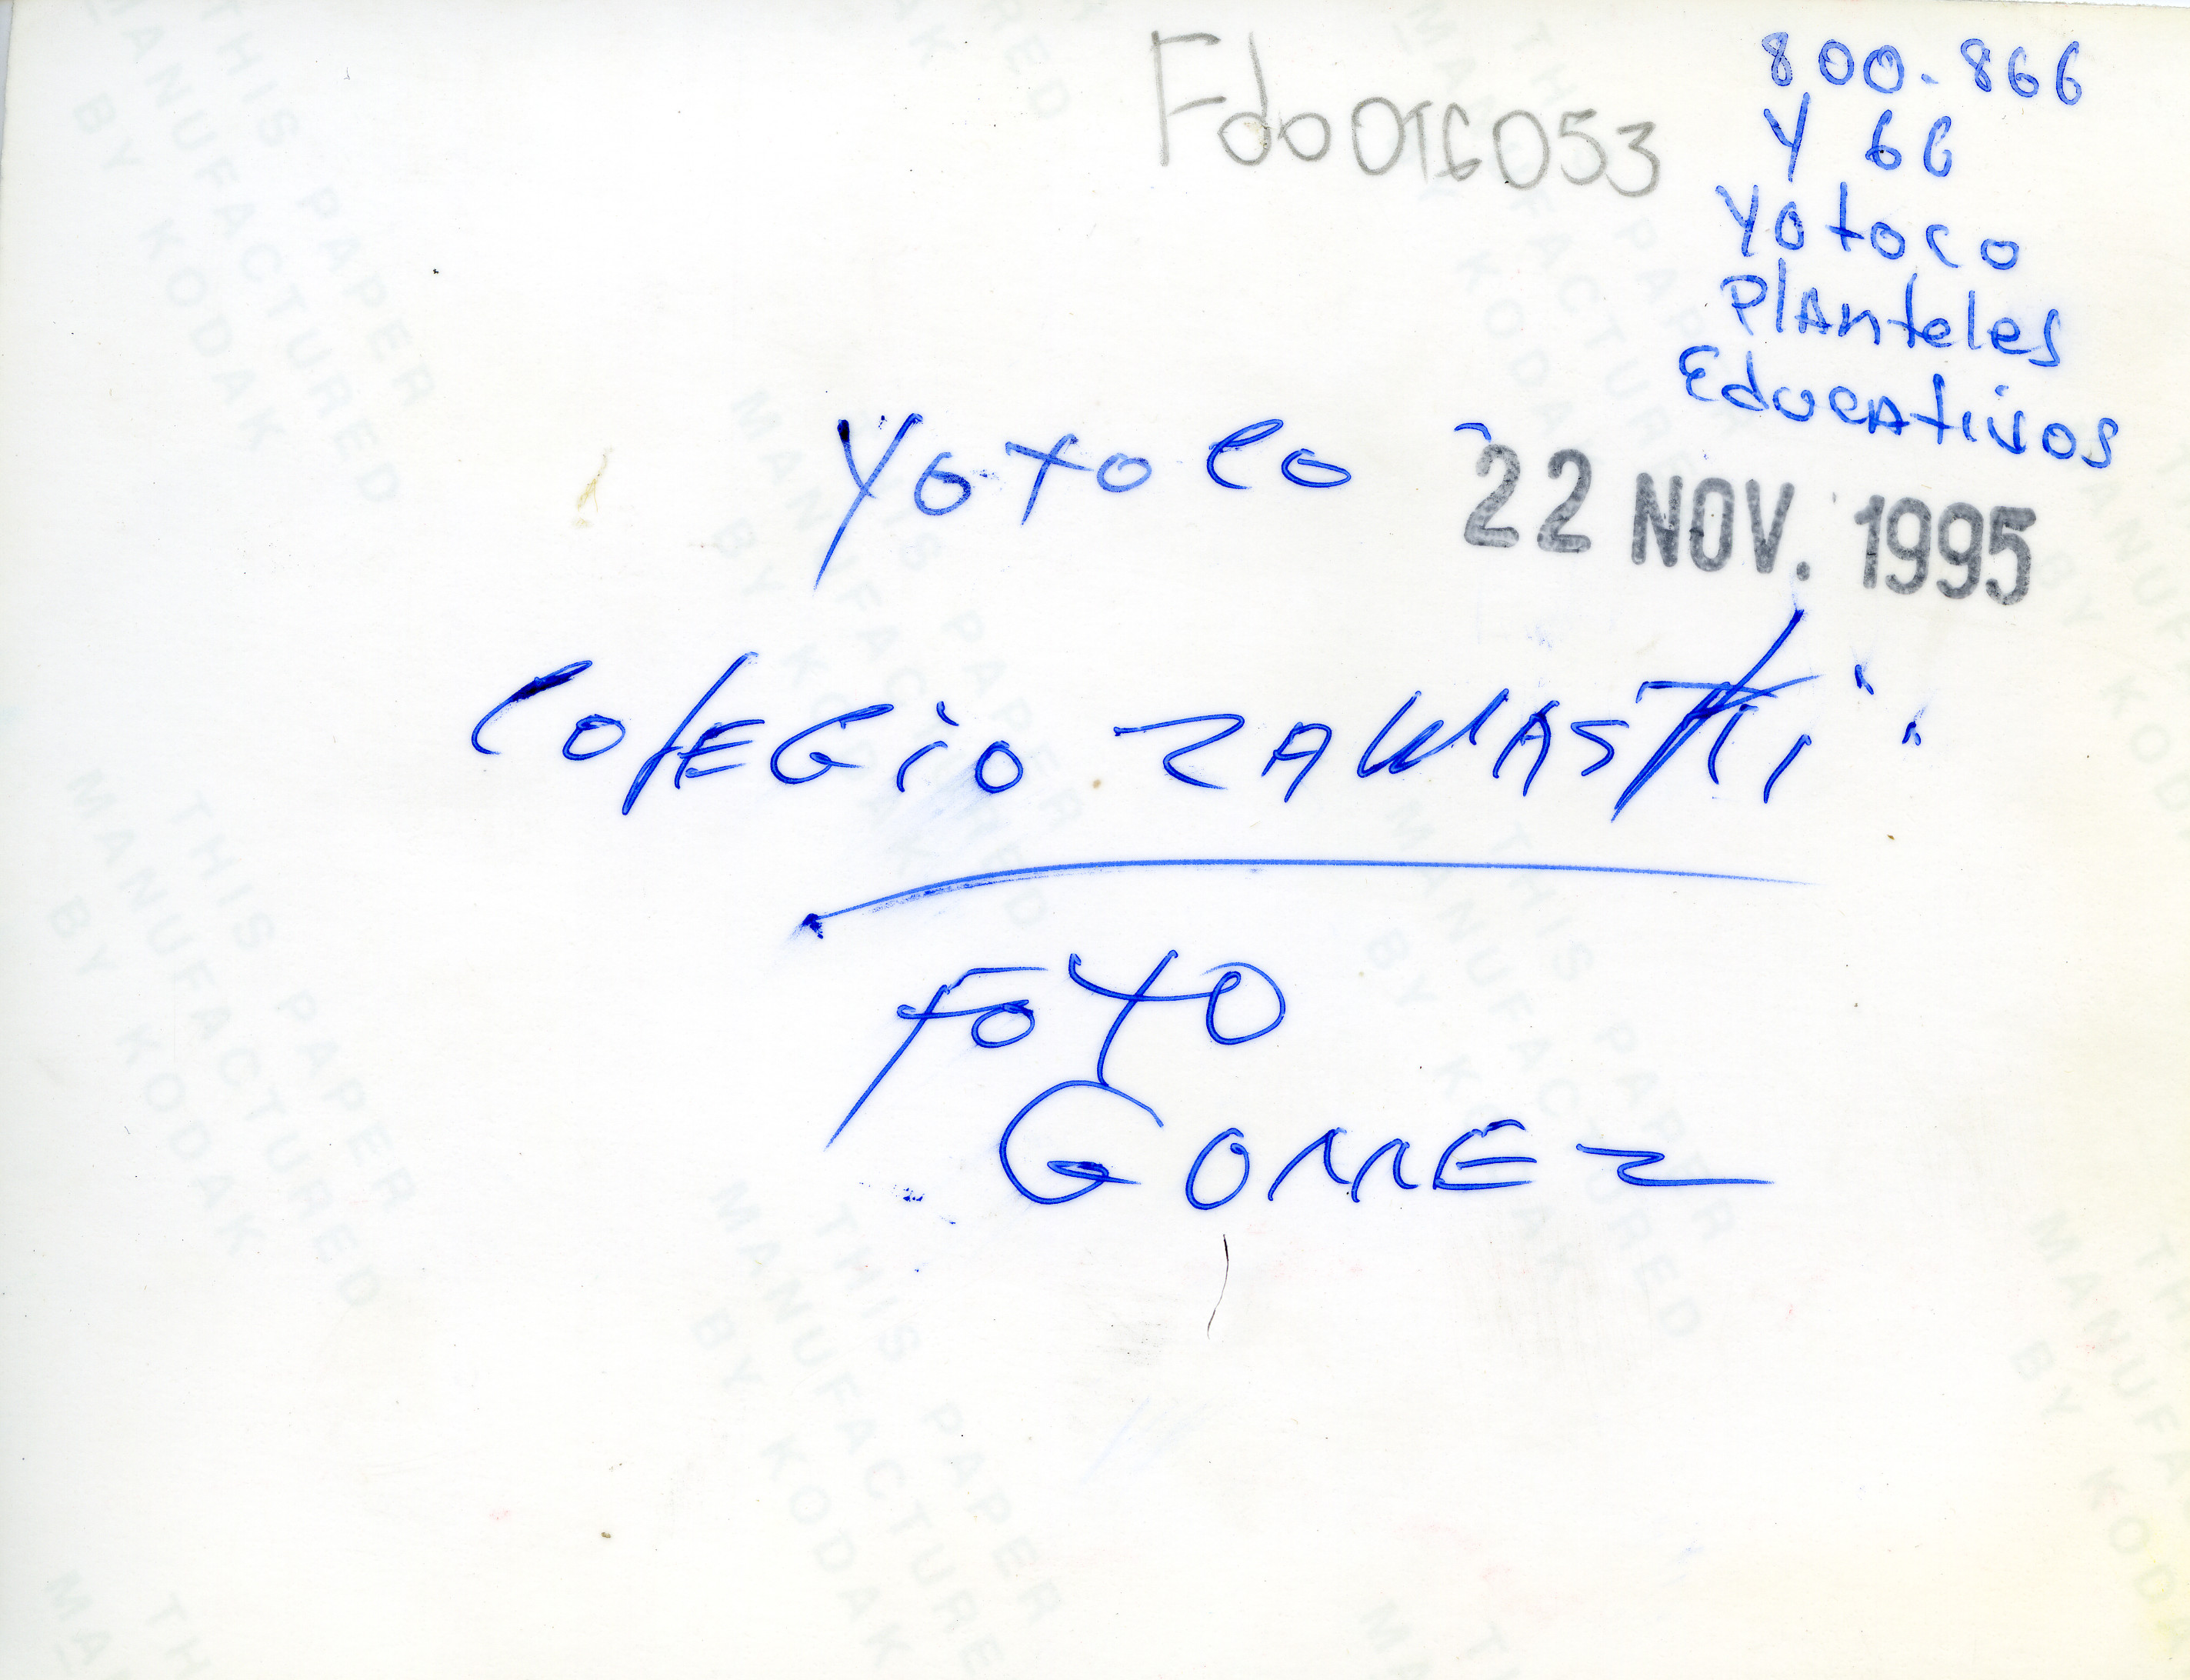 800-866
Y 66
Yotoco
Planteles
Educativos
Yotoco
22 NOV. 1995
Colegio
Foto
Gomez
THIS PAPER
MANUFACTURED
BY KODAK